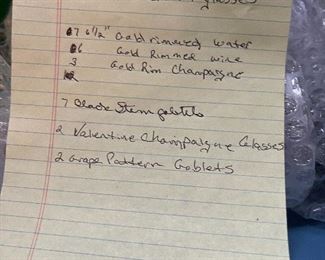 glasses
7 6 1/2" Gold rimmed water
6 Gold Rimmed wine
3 Gold Rim Champagne
7 Black Stem goblets
2 Valentine Champalgne Glasses
2 Grape Pattern Goblets